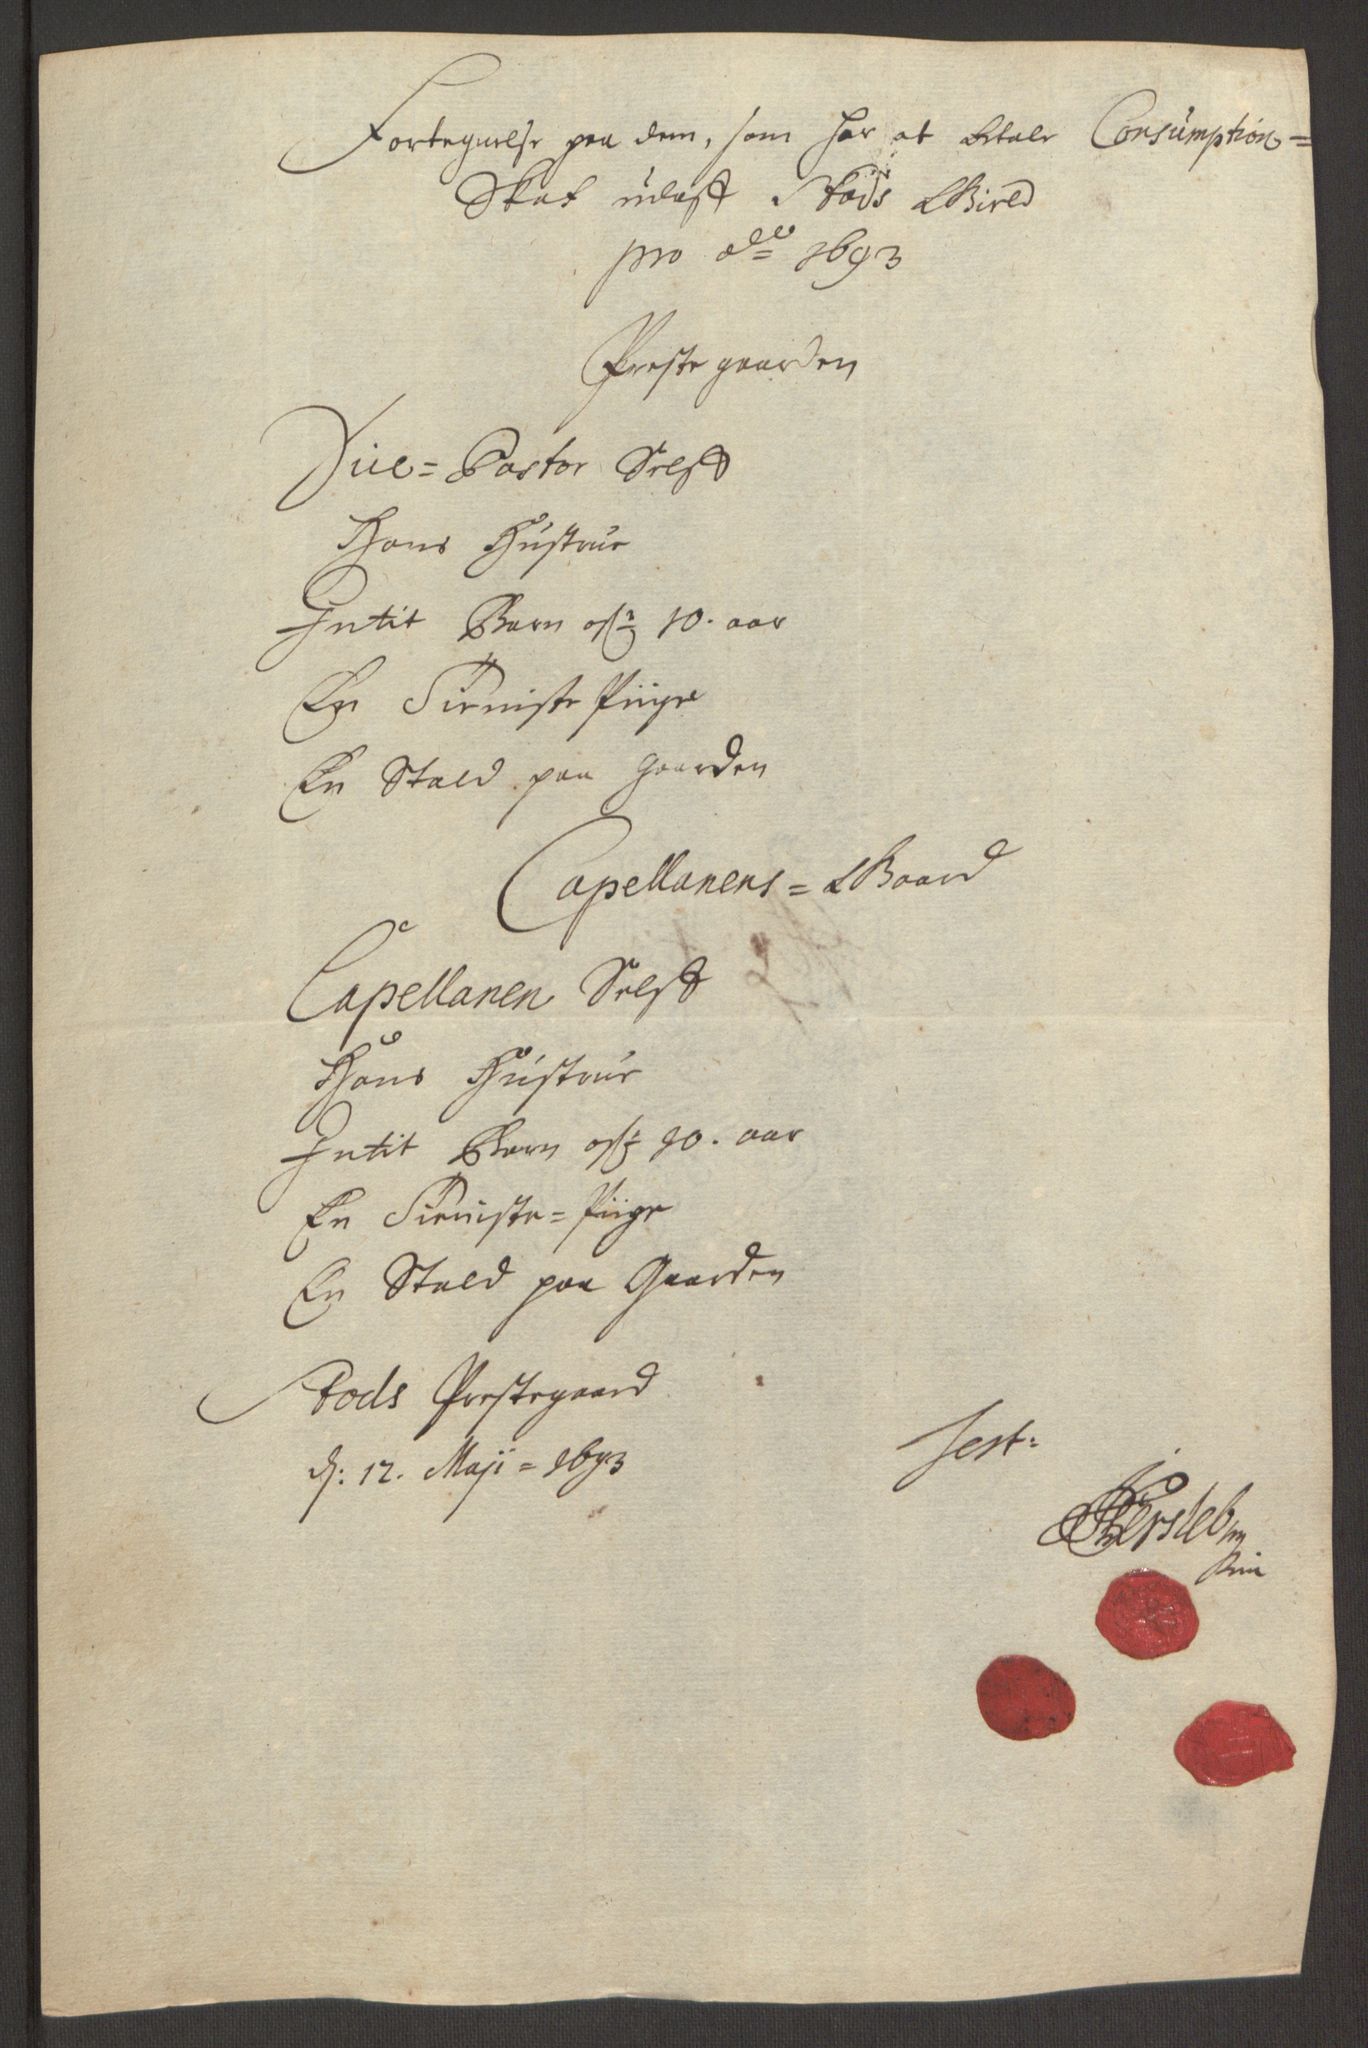 Fortegnelse paa dem, som har at betale Consumption=
Skat udaff Stods Gield
pro Ao 1693
Prestegaarden
Vice=Pastor Selff
Hans Hustrue
Intit Børn ofr 10. aar
En Tieniste Piige
En Stald paa gaarden
Capellanens=Gaard
Capellanen Selff
Hans Hustrue
Intit Børn ofr 10. aar
En Tieniste=Piige
En Stald paa Gaarden
Stods Prestegaard
d: 12. Maji=1693
Test:
Hersleb